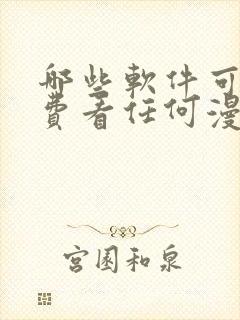 哪些軟件可
費看任何漫
宮園和泉